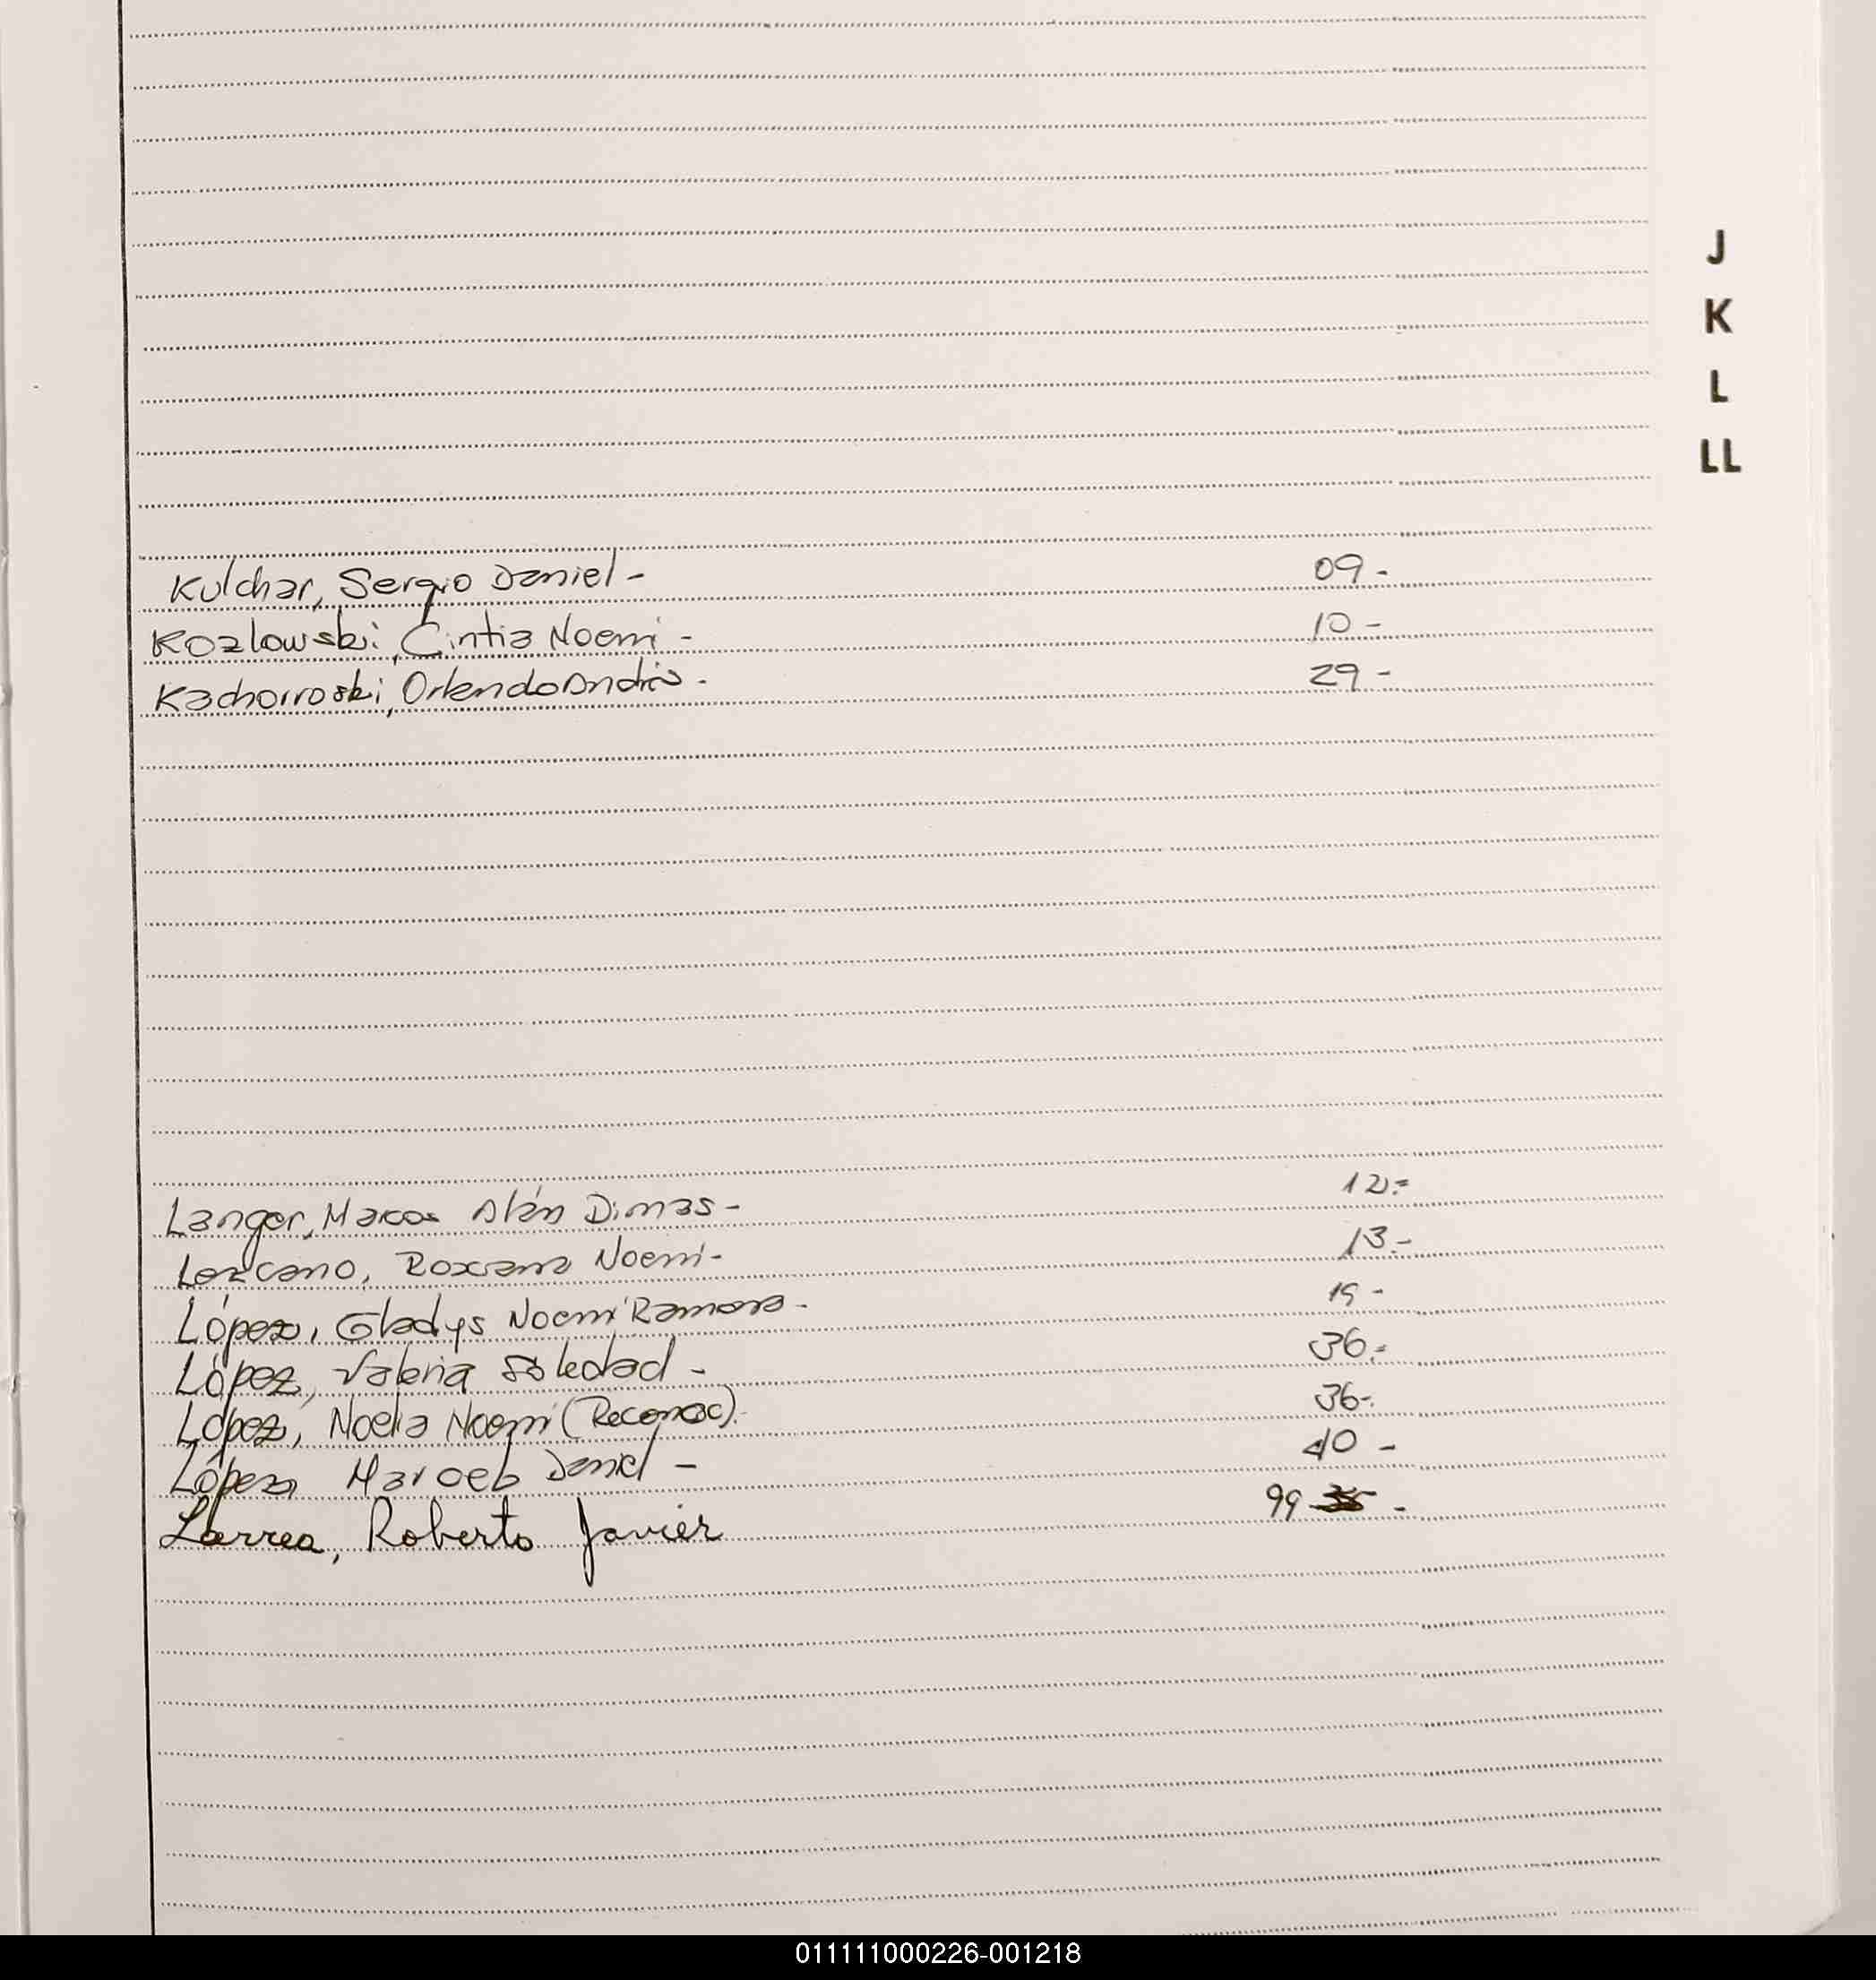 J
K
L
LL
Kulchar, Sergio Daniel - 09 -
Kozlowski, Cintia Noemi - 10 -
Kachorroski, Orlando Andrés. 29 -
Langer, Marcos Alán Dimas - 12.=
Lezcano, Roxana Noemi - 13.-
López, Gladys Noemi Ramona - 19 -
López, Valeria Soledad - 36.=
López, Noelia Noemi (Reconoc). 36-.
López Marcelo Daniel - 40 -
Larrea, Roberto Javier 99 -
011111000226-001218